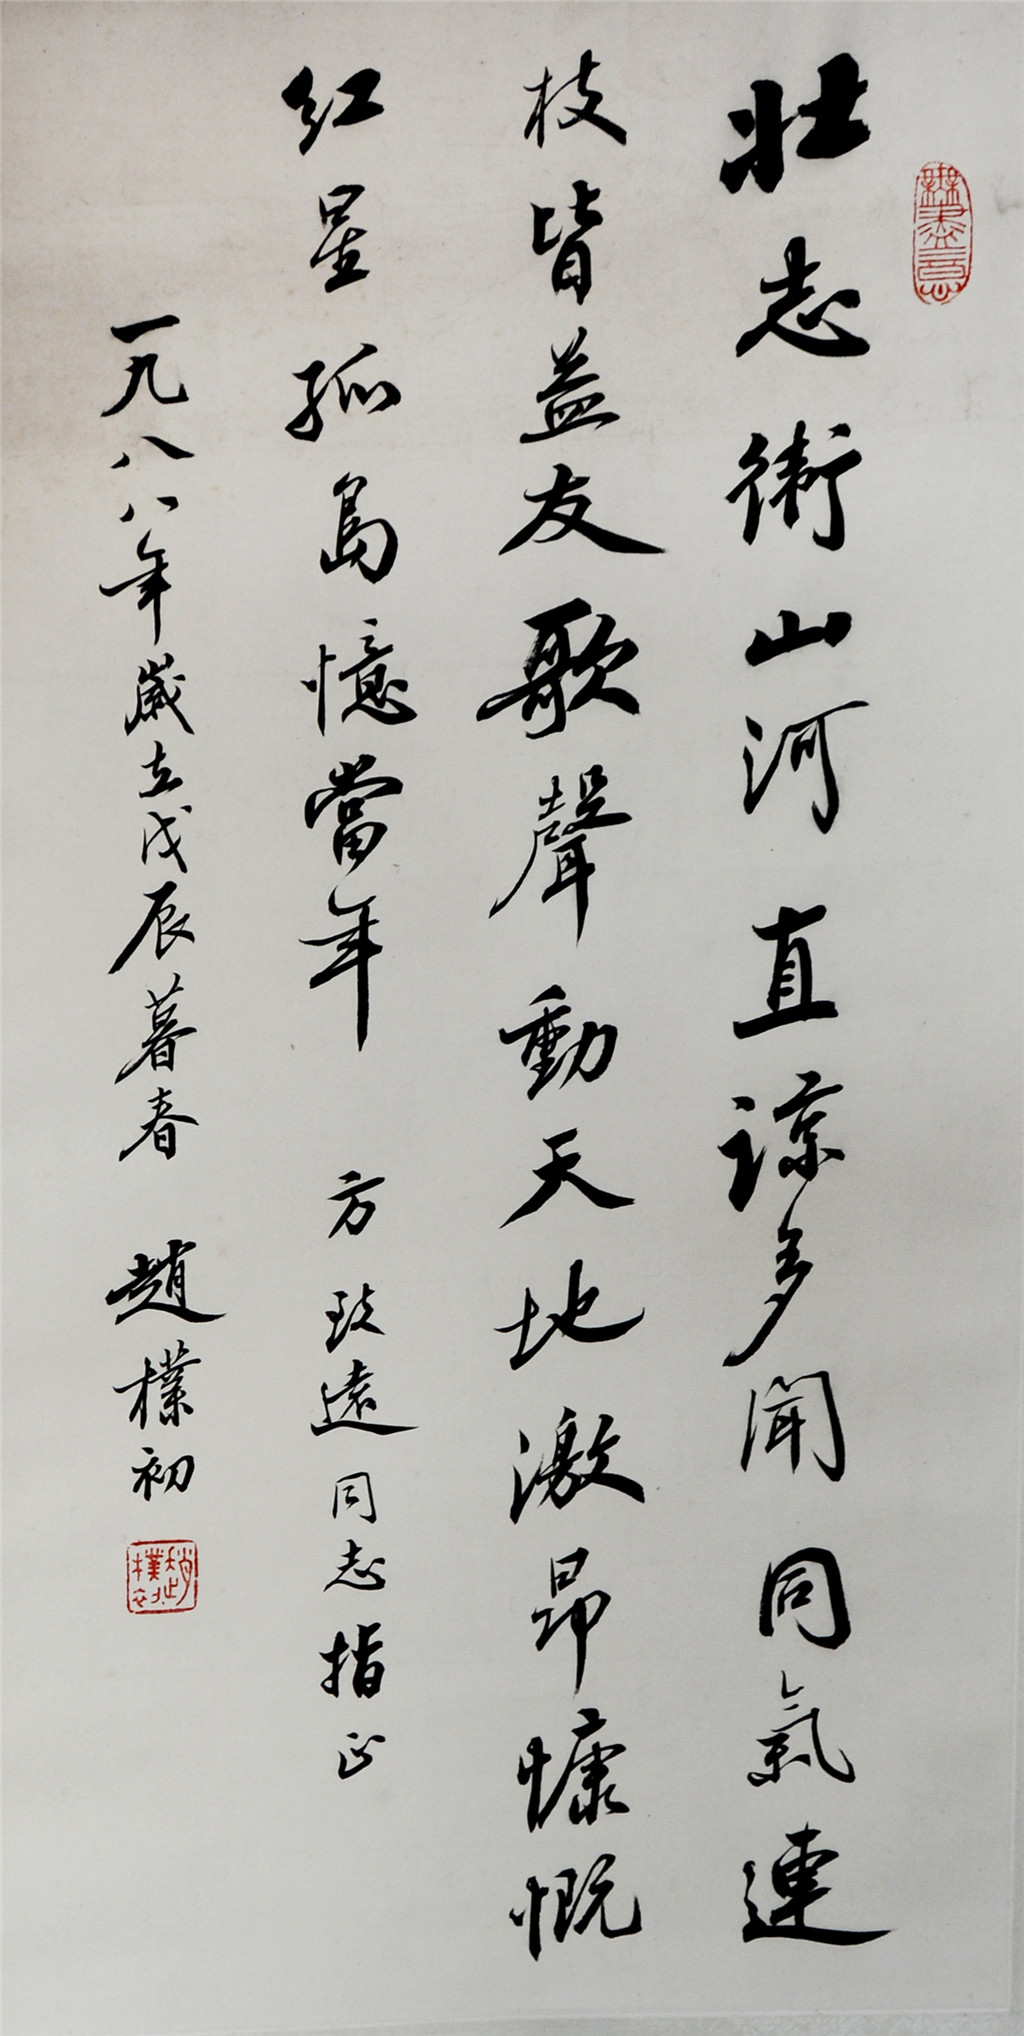 壮志衛山河直諒多聞同氣連
枝皆益友歌聲動天地激昂慷慨
红星孤島憶當年 方致遠同志指正
一九八八年歲在戊辰暮春 趙樸初
無盡意
趙樸初